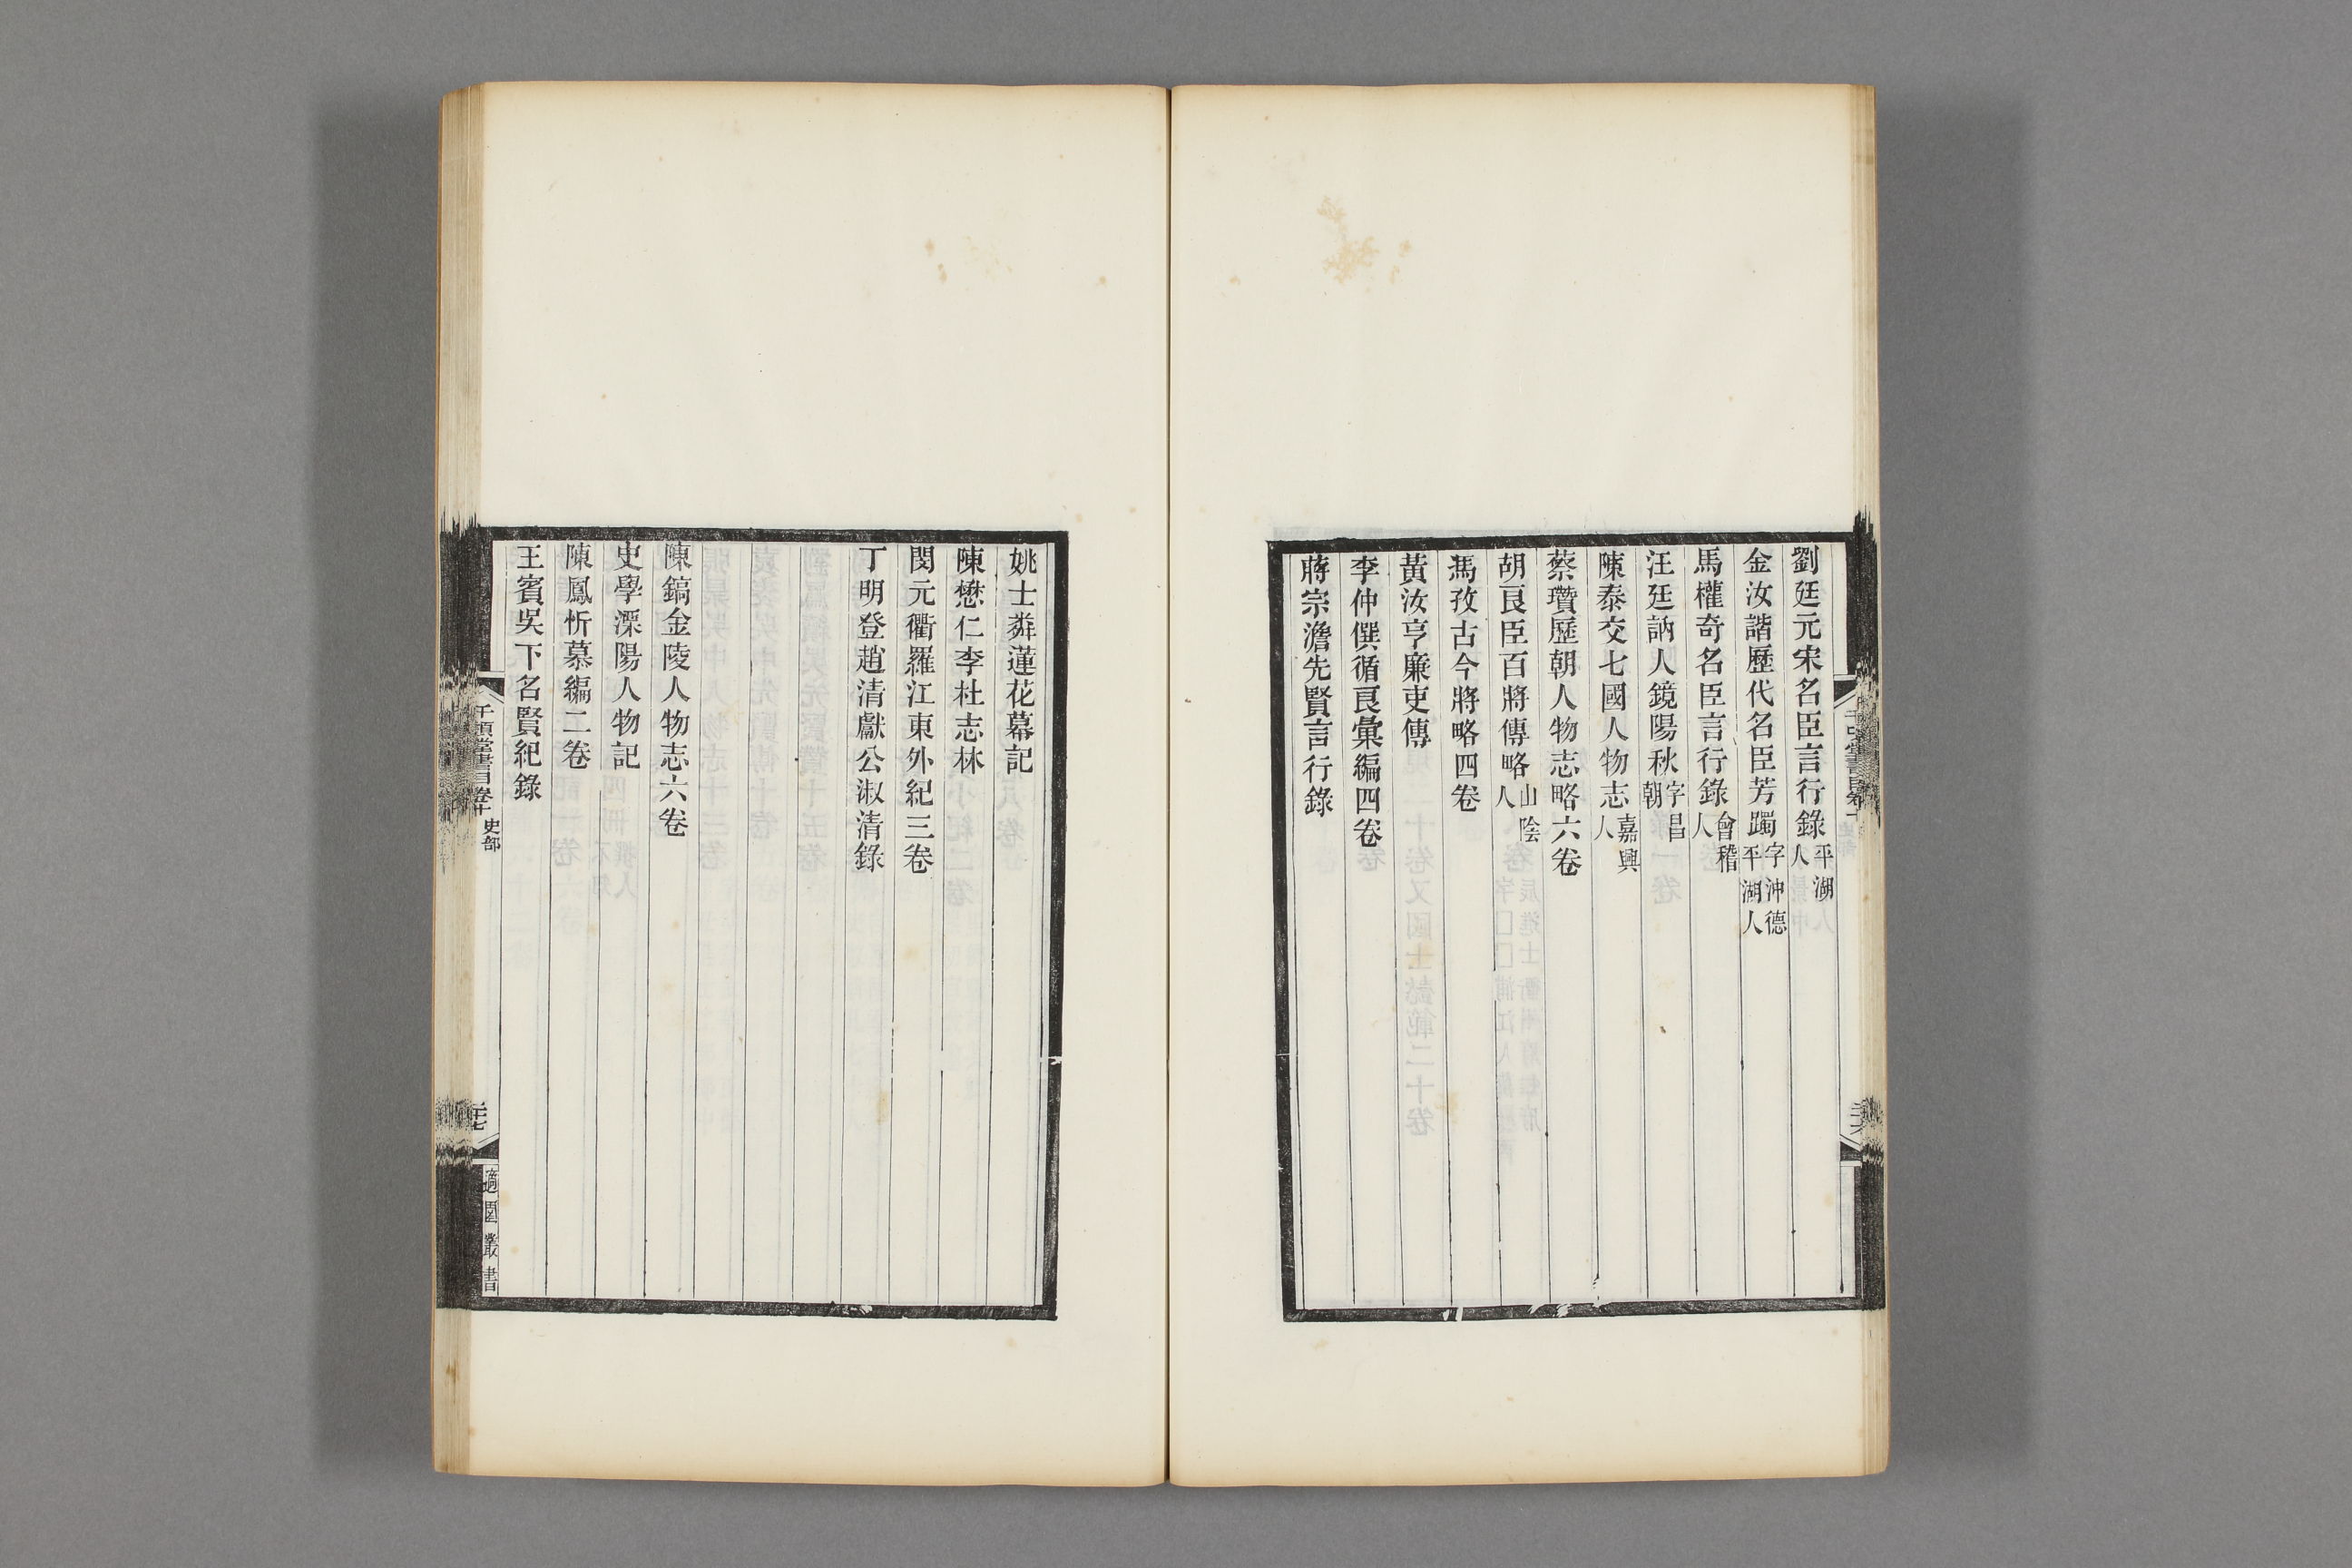 劉廷元宋名臣言行錄平湖人
金汝諧歷代名臣芳躅字沖德平湖人
馬權奇名臣言行錄會稽人
汪廷訥人鏡陽秋字昌朝
陳泰交七國人物志嘉興人
蔡瓚歷朝人物志略六卷
胡良臣百將傳略山陰人
馮孜古今將略四卷
黃汝亨廉吏傳
李仲僎循良彙編四卷
蔣宗澹先賢言行錄
姚士粦蓮花幕記
陳懋仁李杜志林
閔元衢羅江東外紀三卷
丁明登趙清獻公淑清錄
陳鎬金陵人物志六卷
史學溧陽人物記
陳鳳忻慕編二卷
王賓吳下名賢紀錄
千頃堂書目卷十 史部
三七
適園叢書